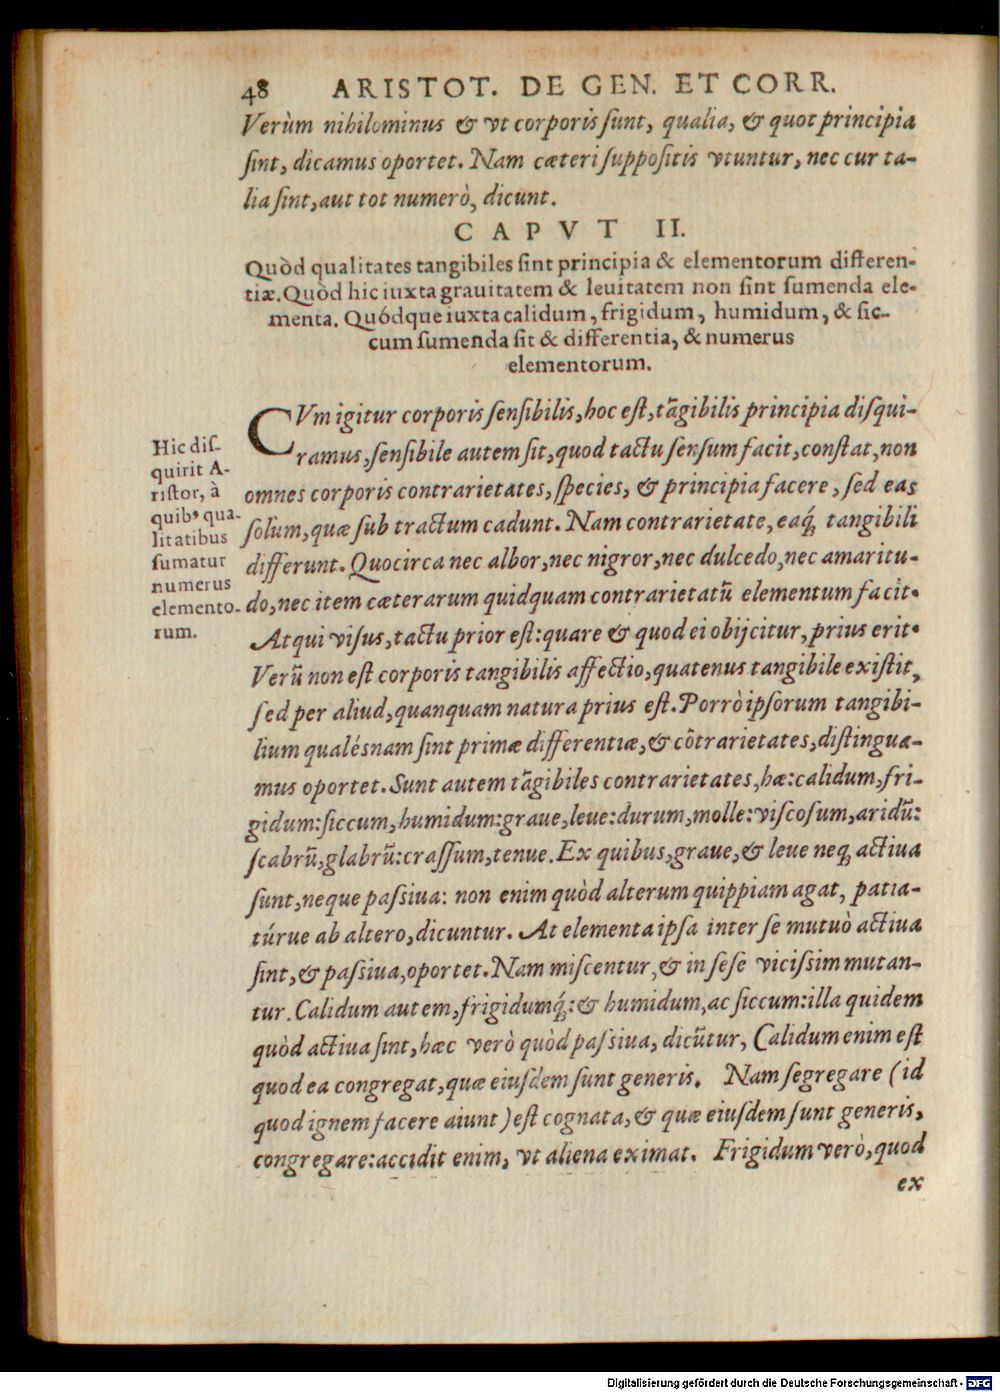 48 ARISTOT. DE GEN. ET CORR.
Verùm nihilominus & vt corporis ſunt, qualia, & quot principia
ſint, dicamus oportet. Nam cæteri ſuppoſitis vtuntur, nec cur ta-
lia ſint, aut tot numerò, dicunt.
CAPVT II.
Quòd qualitates tangibiles ſint principia & elementorum differen-
tiæ. Quòd hic iuxta grauitatem & leuitatem non ſint ſumenda ele-
menta. Quódque iuxta calidum, frigidum, humidum, & ſic-
cum ſumenda ſit & differentia, & numerus
elementorum.
Hic diſ-
quirit A-
riſtor, à
quibꝰ qua-
litatibus
ſumatur
numerus
elemento-
rum.
CVm igitur corporis ſenſibilis, hoc eſt, tāgibilis principia diſqui-
ramus, ſenſibile autem ſit, quod tactu ſenſum facit, conſtat, non
omnes corporis contrarietates, ſpecies, & principia facere, ſed eas
ſolùm, quæ ſub tractum cadunt. Nam contrarietate, eaq́; tangibili
differunt. Quocirca nec albor, nec nigror, nec dulcedo, nec amaritu-
do, nec item cæterarum quidquam contrarietatū elementum facit.
Atqui viſus, tactu prior eſt: quare & quod ei obijcitur, prius erit.
Verū non eſt corporis tangibilis affectio, quatenus tangibile exiſtit,
ſed per aliud, quanquam natura prius eſt. Porrò ipſorum tangibi-
lium qualésnam ſint primæ differentiæ, & cōtrarietates, diſtingua-
mus oportet. Sunt autem tāgibiles contrarietates, hæ: calidum, fri-
gidum: ſiccum, humidum: graue, leue: durum, molle: viſcoſum, aridū:
ſcabrū, glabrū: craſſum, tenue. Ex quibus, graue, & leue neq; actiua
ſunt, neque paſsiua: non enim quòd alterum quippiam agat, patia-
túrue ab altero, dicuntur. At elementa ipſa inter ſe mutuò actiua
ſint, & paſsiua, oportet. Nam miſcentur, & in ſeſe viciſsim mutan-
tur. Calidum autem, frigidumq́;: & humidum, ac ſiccum: illa quidem
quòd actiua ſint, hæc verò quòd paſsiua, dicūtur, Calidum enim eſt
quod ea congregat, quæ eiuſdem ſunt generis. Nam ſegregare (id
quod ignem facere aiunt) eſt cognata, & quæ eiuſdem ſunt generis,
congregare: accidit enim, vt aliena eximat. Frigidum verò, quod
ex
Digitalisierung gefördert durch die Deutsche Forschungsgemeinschaft - DFG